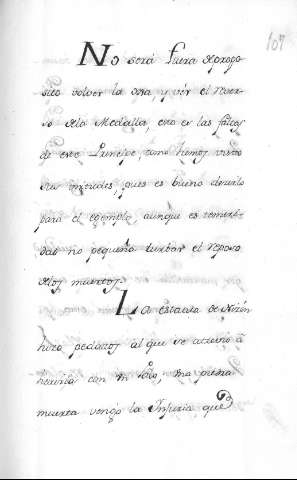 107
No será fuera de propo
sito volver la oja, y vér el rever
so de la Medalla, esto es las faltas
de este Principe, como hemos visto
sus virtudes, pues es bueno decirlo
para el exemplo, aunque es temeri
dad no pequeña turbar el reposo
de los muertos.
La estatua de Nizón
hizo pedazos al que se atrevió á
herirla con un palo, una piedra
muerta vengó la Injuria que